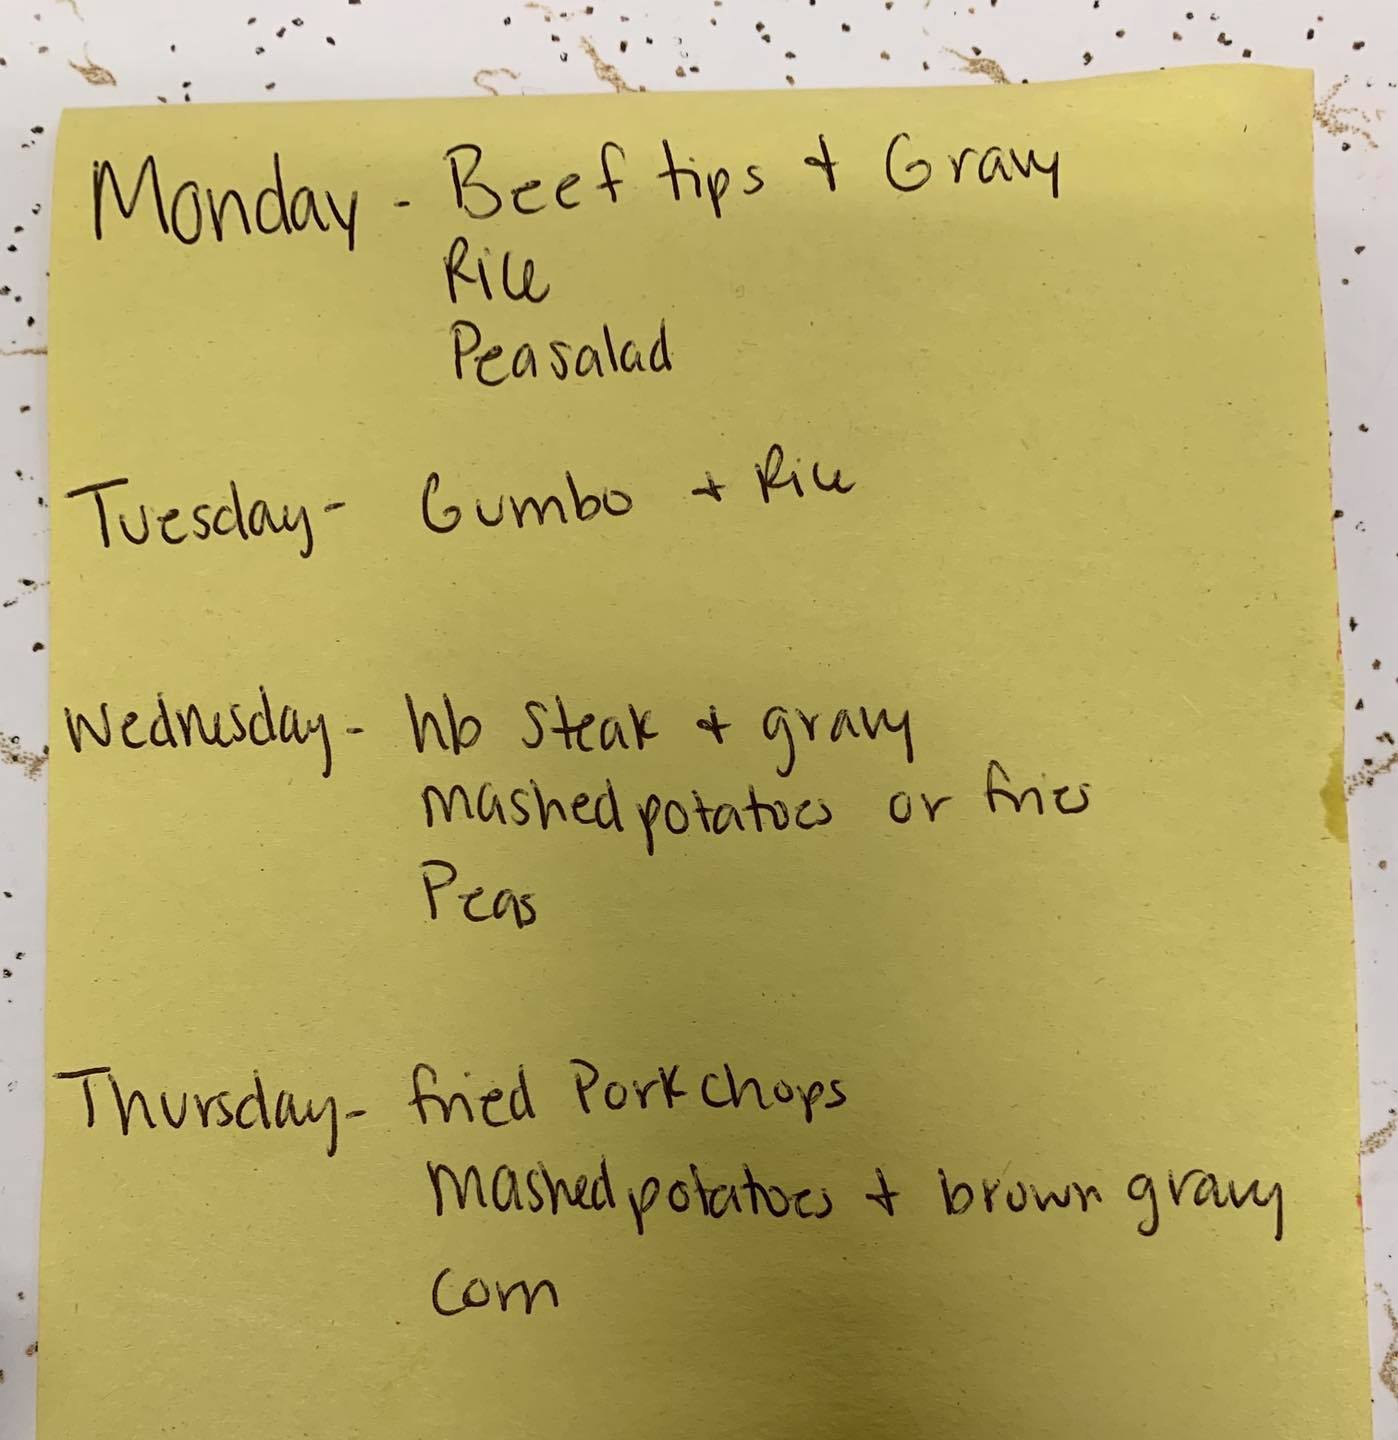 Monday - Beef tips + Gravy
Rice
Pea salad
Tuesday - Gumbo + Rice
Wednesday - hb Steak + gravy
mashed potatoes or fries
Peas
Thursday - fried Pork chops
mashed potatoes + brown gravy
corn